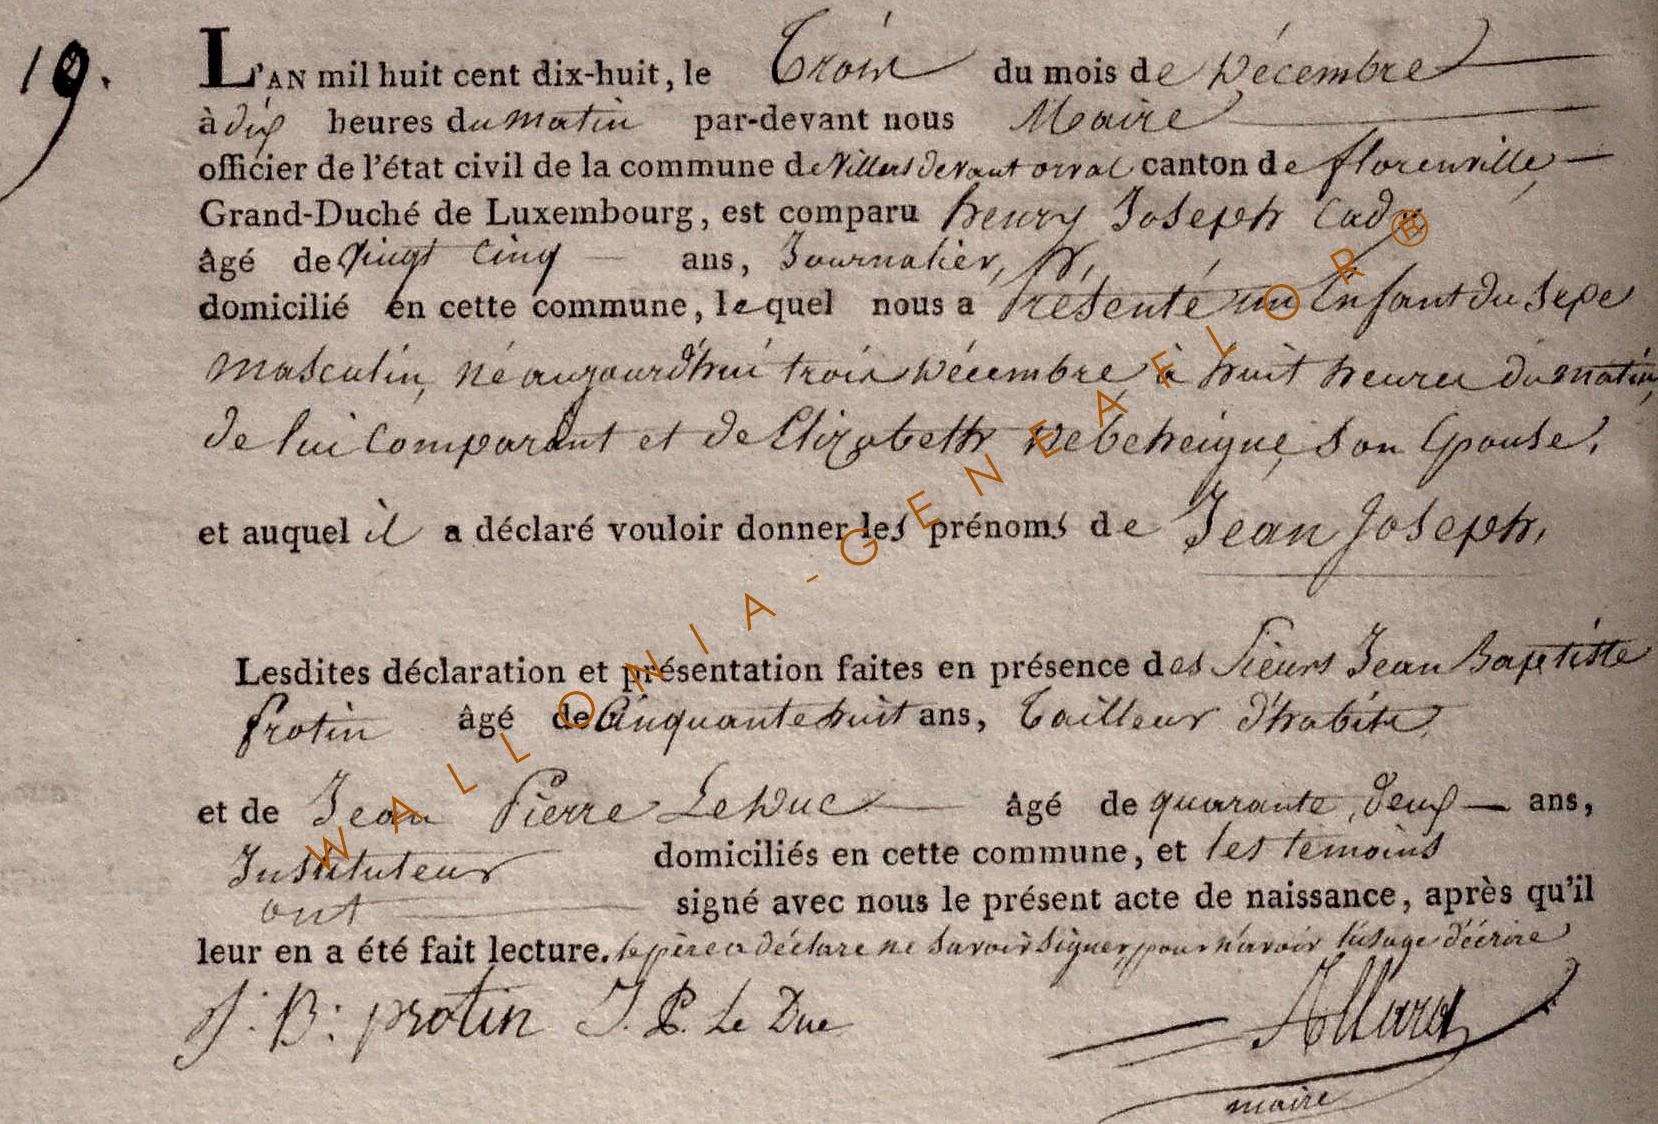 19.
L'AN mil huit cent dix-huit, le Trois du mois de Décembre
à dix heures du matin par-devant nous Maire
officier de l'état civil de la commune de Villers devant orval canton de florenville
Grand-Duché de Luxembourg, est comparu henry Joseph Cady
âgé de Vingt Cinq ans, Journalier,
domicilié en cette commune, lequel nous a Présenté un Enfant du Sexe
masculin, né aujourd'hui trois Décembre à huit heures du matin,
de lui Comparant et de Elizabeth Debeheigne, Son Epouse,
et auquel il a déclaré vouloir donner les prénoms de Jean Joseph,
Lesdites déclaration et présentation faites en présence des Sieurs Jean Baptiste
Protin âgé de Cinquante huit ans, Tailleur d'habits,
et de Jean Pierre Le Duc âgé de quarante deux ans,
Instituteur domiciliés en cette commune, et les temoins
ont signé avec nous le présent acte de naissance, après qu'il
leur en a été fait lecture. le père a déclaré ne Savoir Signer, pour n'avoir l'usage d'écrire
J: B: protin J. P. Le Duc Allard
maire
WALLONIA-GENEAFLOR®